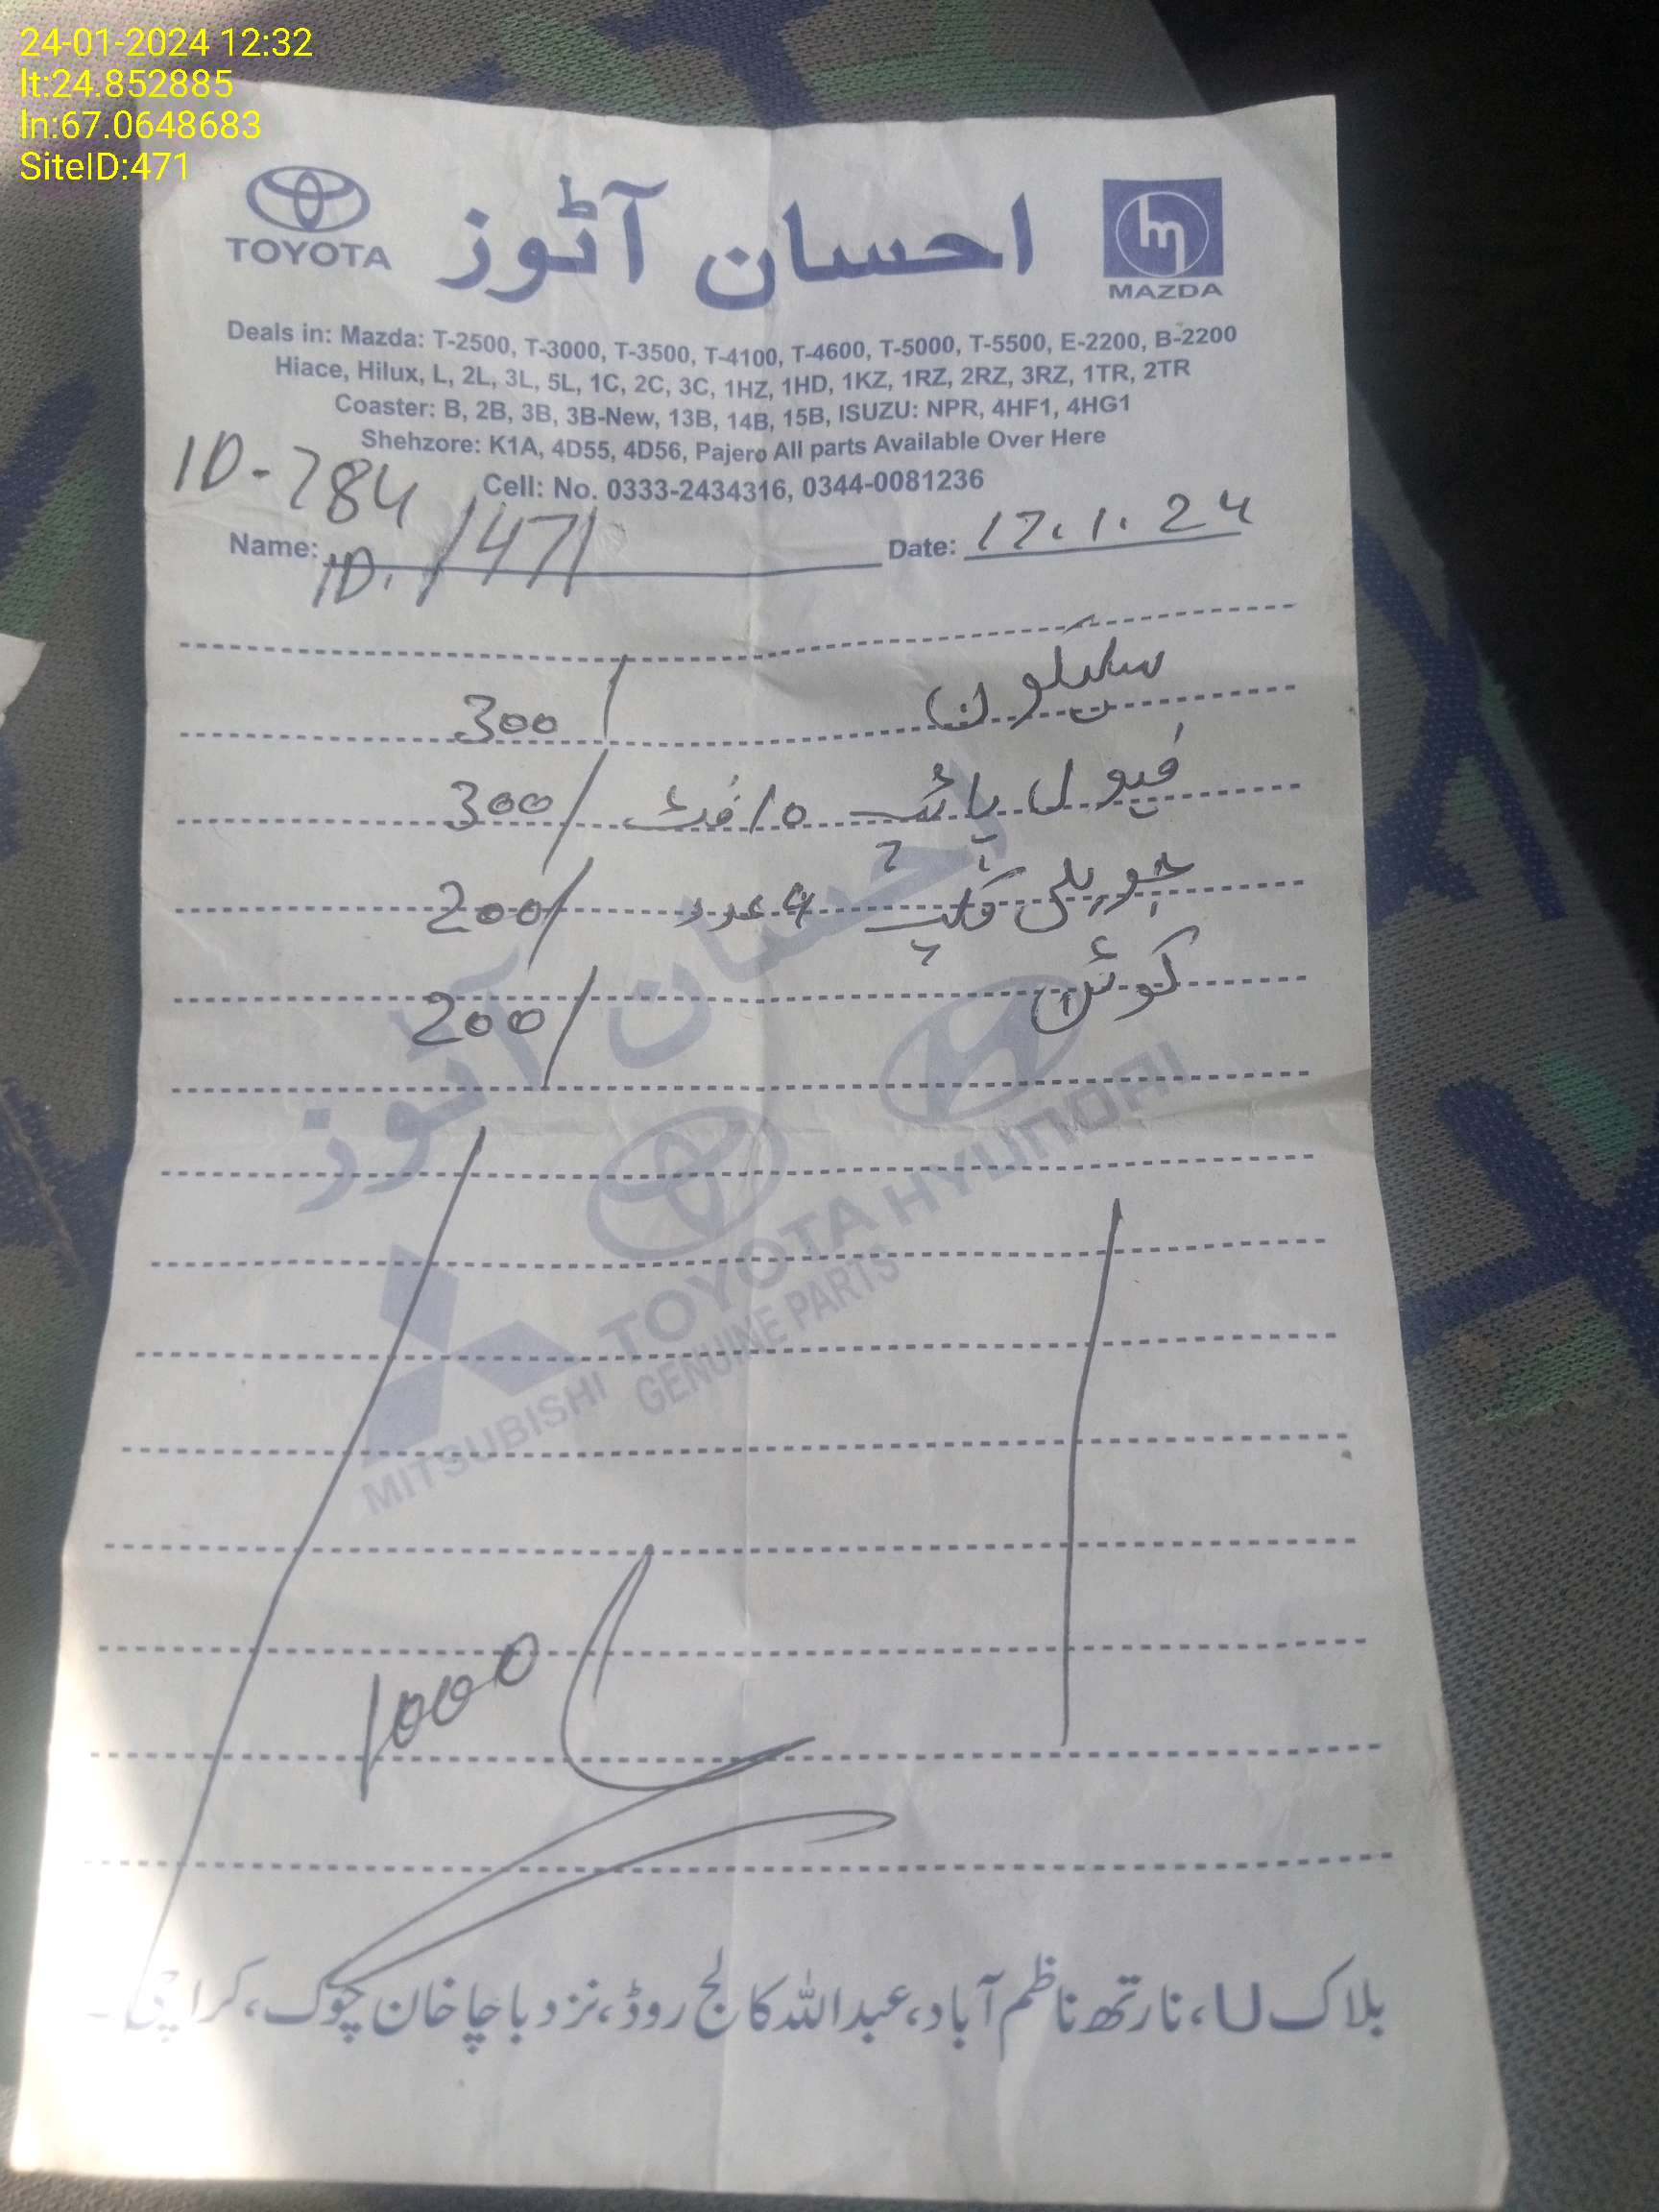 24-01-2024 12:32
lt:24.852885
ln:67.0648683
SiteID:471
TOYOTA
احسان آٹوز
MAZDA
Deals in: Mazda: T-2500, T-3000, T-3500, T-4100, T-4600, T-5000, T-5500, E-2200, B-2200
Hiace, Hilux, L, 2L, 3L, 5L, 1C, 2C, 3C, 1HZ, 1HD, 1KZ, 1RZ, 2RZ, 3RZ, 1TR, 2TR
Coaster: B, 2B, 3B, 3B-New, 13B, 14B, 15B, ISUZU: NPR, 4HF1, 4HG1
Shehzore: K1A, 4D55, 4D56, Pajero All parts Available Over Here
Cell: No. 0333-2434316, 0344-0081236
ID-784
Name: ID. /471 Date: 17.1.24
سلیکون 300/
فیول پائپ 10 فٹ 300/
جوبلی کلپ 4 عدد 200/
کوئل 200/
احسان آٹوز
HYUNDAI
TOYOTA
MITSUBISHI
GENUINE PARTS
1000
بلاک U، نارتھ ناظم آباد، عبداللہ کالج روڈ، نزد باچا خان چوک، کراچی۔